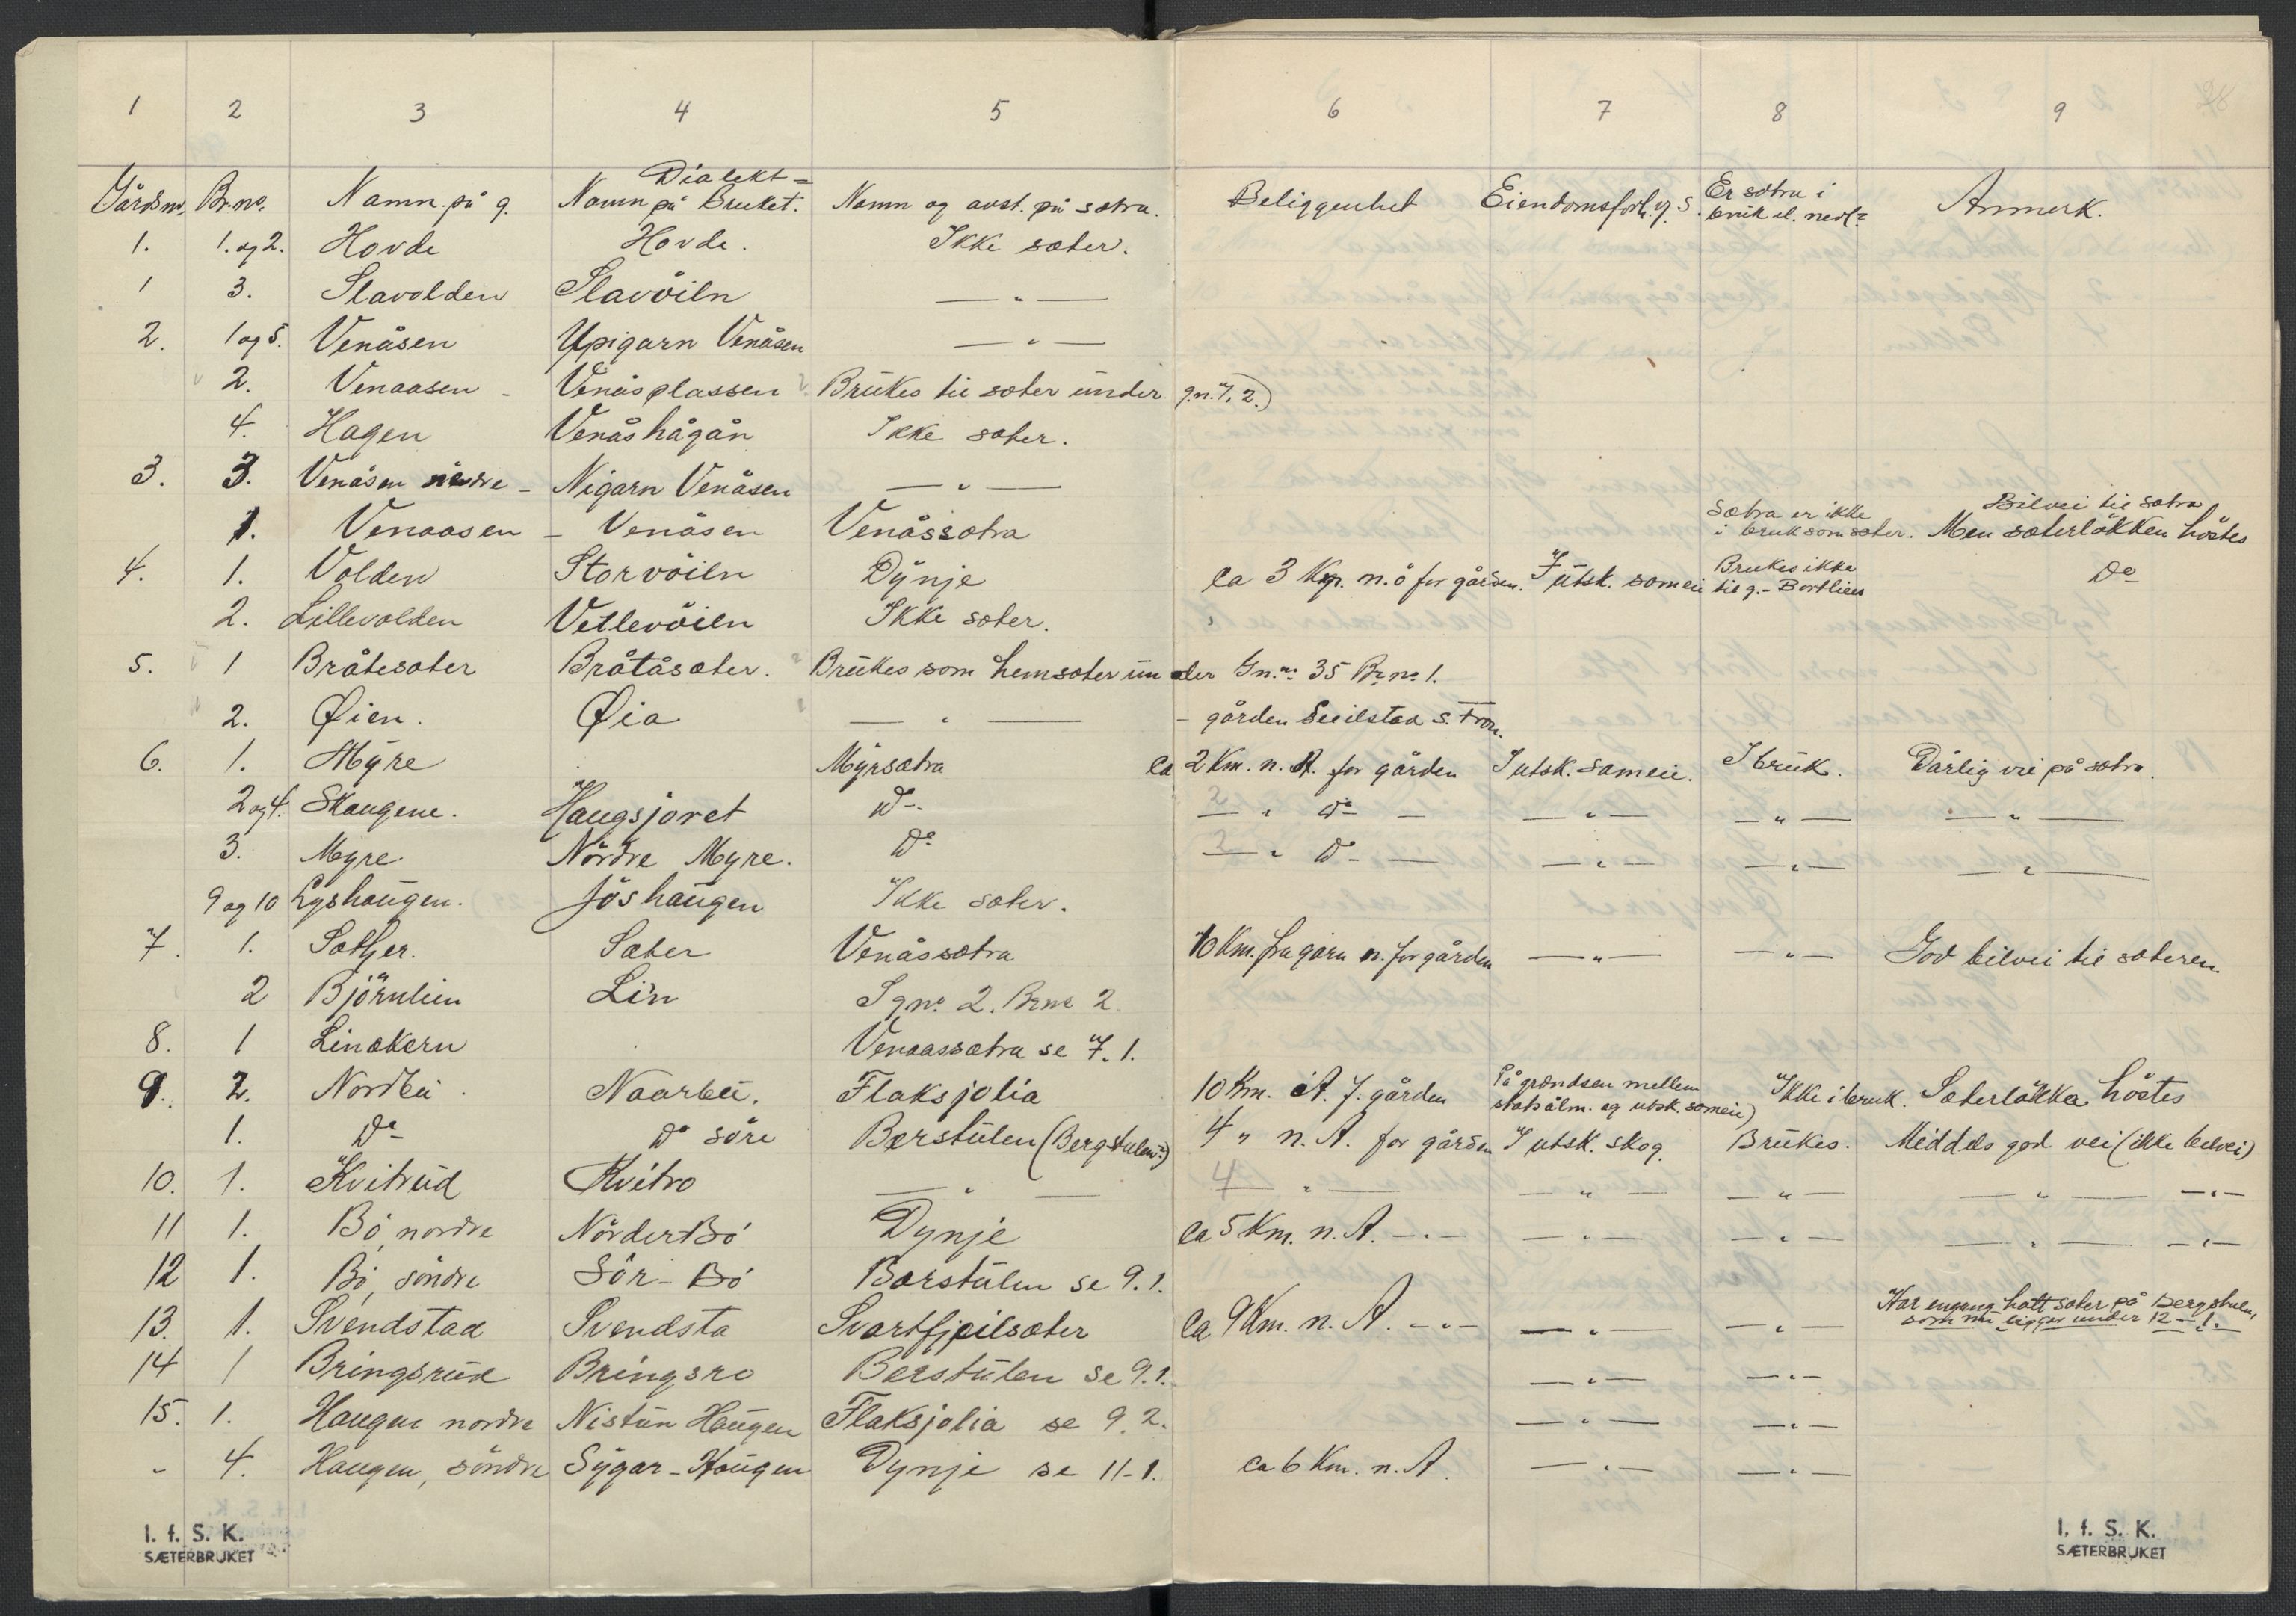 1 2 3 4 5 6 7 8 9
Gårdsno. Br.no. Namn på g. Dialekt= Namn på Bruket. Namn og avst. på sætra. Beliggenhet Eiendomsforh. Er sætra i bruk el. nedl? Anmerk.
1. 1. og 2. Hovde Hovde. Ikke sæter.
1 3. Slavolden Slavöiln — " —
2. 1 og 5. Venåsen Upigarn Venåsen — " —
2. Venaasen - Venåsplassen Brukes til sæter under g.n. 7, 2.)
4. Hagen Venåshågån Ikke sæter.
3. 3. Venåsen nedre - Nigarn Venåsen — " —
1. Venaasen - Venåsen Venåssætra Sætra er ikke i bruk som sæter. Bilvei til sætra Men sæterløkken høstes
4. 1. Volden Storvöiln Dynje ca 3 Km. n.ö for gården. I utsk. someie Brukes ikke til g.- Bortleies Do
2. Lillevolden Vetlevöiln Ikke sæter.
5. 1 Bråtesæter Bråtåsæter. Brukes som hemsæter under Gn.no 35 Br.no 1.
2. Øien. Øia — " — - gården Seielstad S. Fron.
6. 1. Myre Myrsætra ca 2 Km. n. A. for gården I utsk. sameie. I bruk. Dårlig vei på sætra.
2 og 4. Skaugene. Haugsjoret Do. 2 " Do — — " — — " — — " —
3. Myre Nördre Myre. Do 2 " Do — — " — — " — — " —
9 og 10 Lyshaugen. Jöshaugen Ikke sæter.
7. 1. Sæther. Sæter Venåssætra 10 Km. fra garn n. for gården — " — — " — God bilvei til sæteren.
2 Björnlien Li'n S gno. 2. Brno 2
8. 1 Linåkern Venaassætra se 7. 1.
9. 2. Nordbu. Naarbu. Flaksjolia 10 Km. A. f. gården På grændsen mellem statsalm. og utsk. someie) Ikke i bruk. Sæterløkka høstes
1. Do Do söre Bærstulen (Bergstulen?) 4 " n. A. for gården I utsk. skog. Brukes. Middels god vei (ikke bilvei)
10. 1. Kvitrud Kvitro — " — 4 " — — " — — " — — " — — " —
11 1. Bö, nordre Nörder Bö Dynje ca 5 Km. n. A. — " — — " — — " — — " — — " —
12 1. Bö, söndre Sör-Bö Bærstulen se 9. 1.
13. 1. Svendstad Svendsta Svartfjeilsæter ca 9 Km. n. A. — " — — " — — " — Har engang hatt sæter på Bergstulen, som nu ligger under 12 - 1.
14 1 Bringsrud Bringsro Berstulen se 9. 1. — " — — " —
15. 1. Haugen nordre Nistun Haugen Flaksjolia se 9. 2. — " — — " —
- 4. Haugen, söndre Sygar-Haugen Dynje se 11-1. ca 6 Km. n. A. — " — — " —
I. f. S. K.
SÆTERBRUKET
I. f. S. K.
SÆTERBRUKET